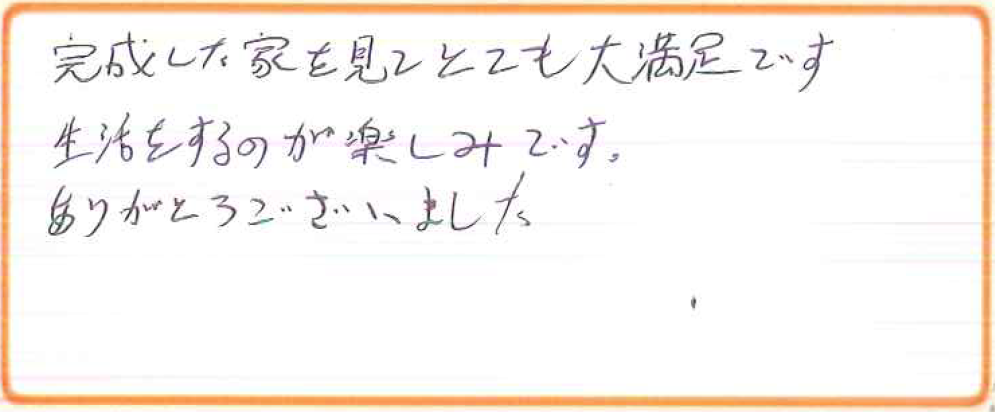 完成した家を見てとても大満足です
生活をするのが楽しみです。
ありがとうございました